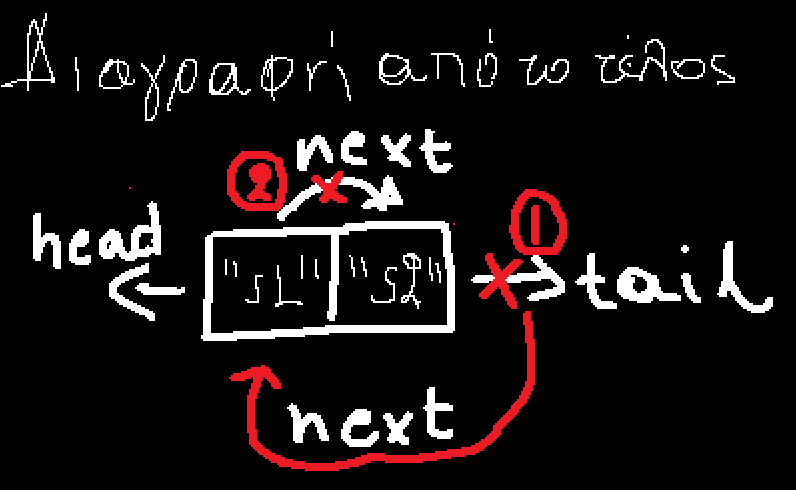 Διαγραφή από το τέλος
2 next
1
head "s1" "s2" tail
next